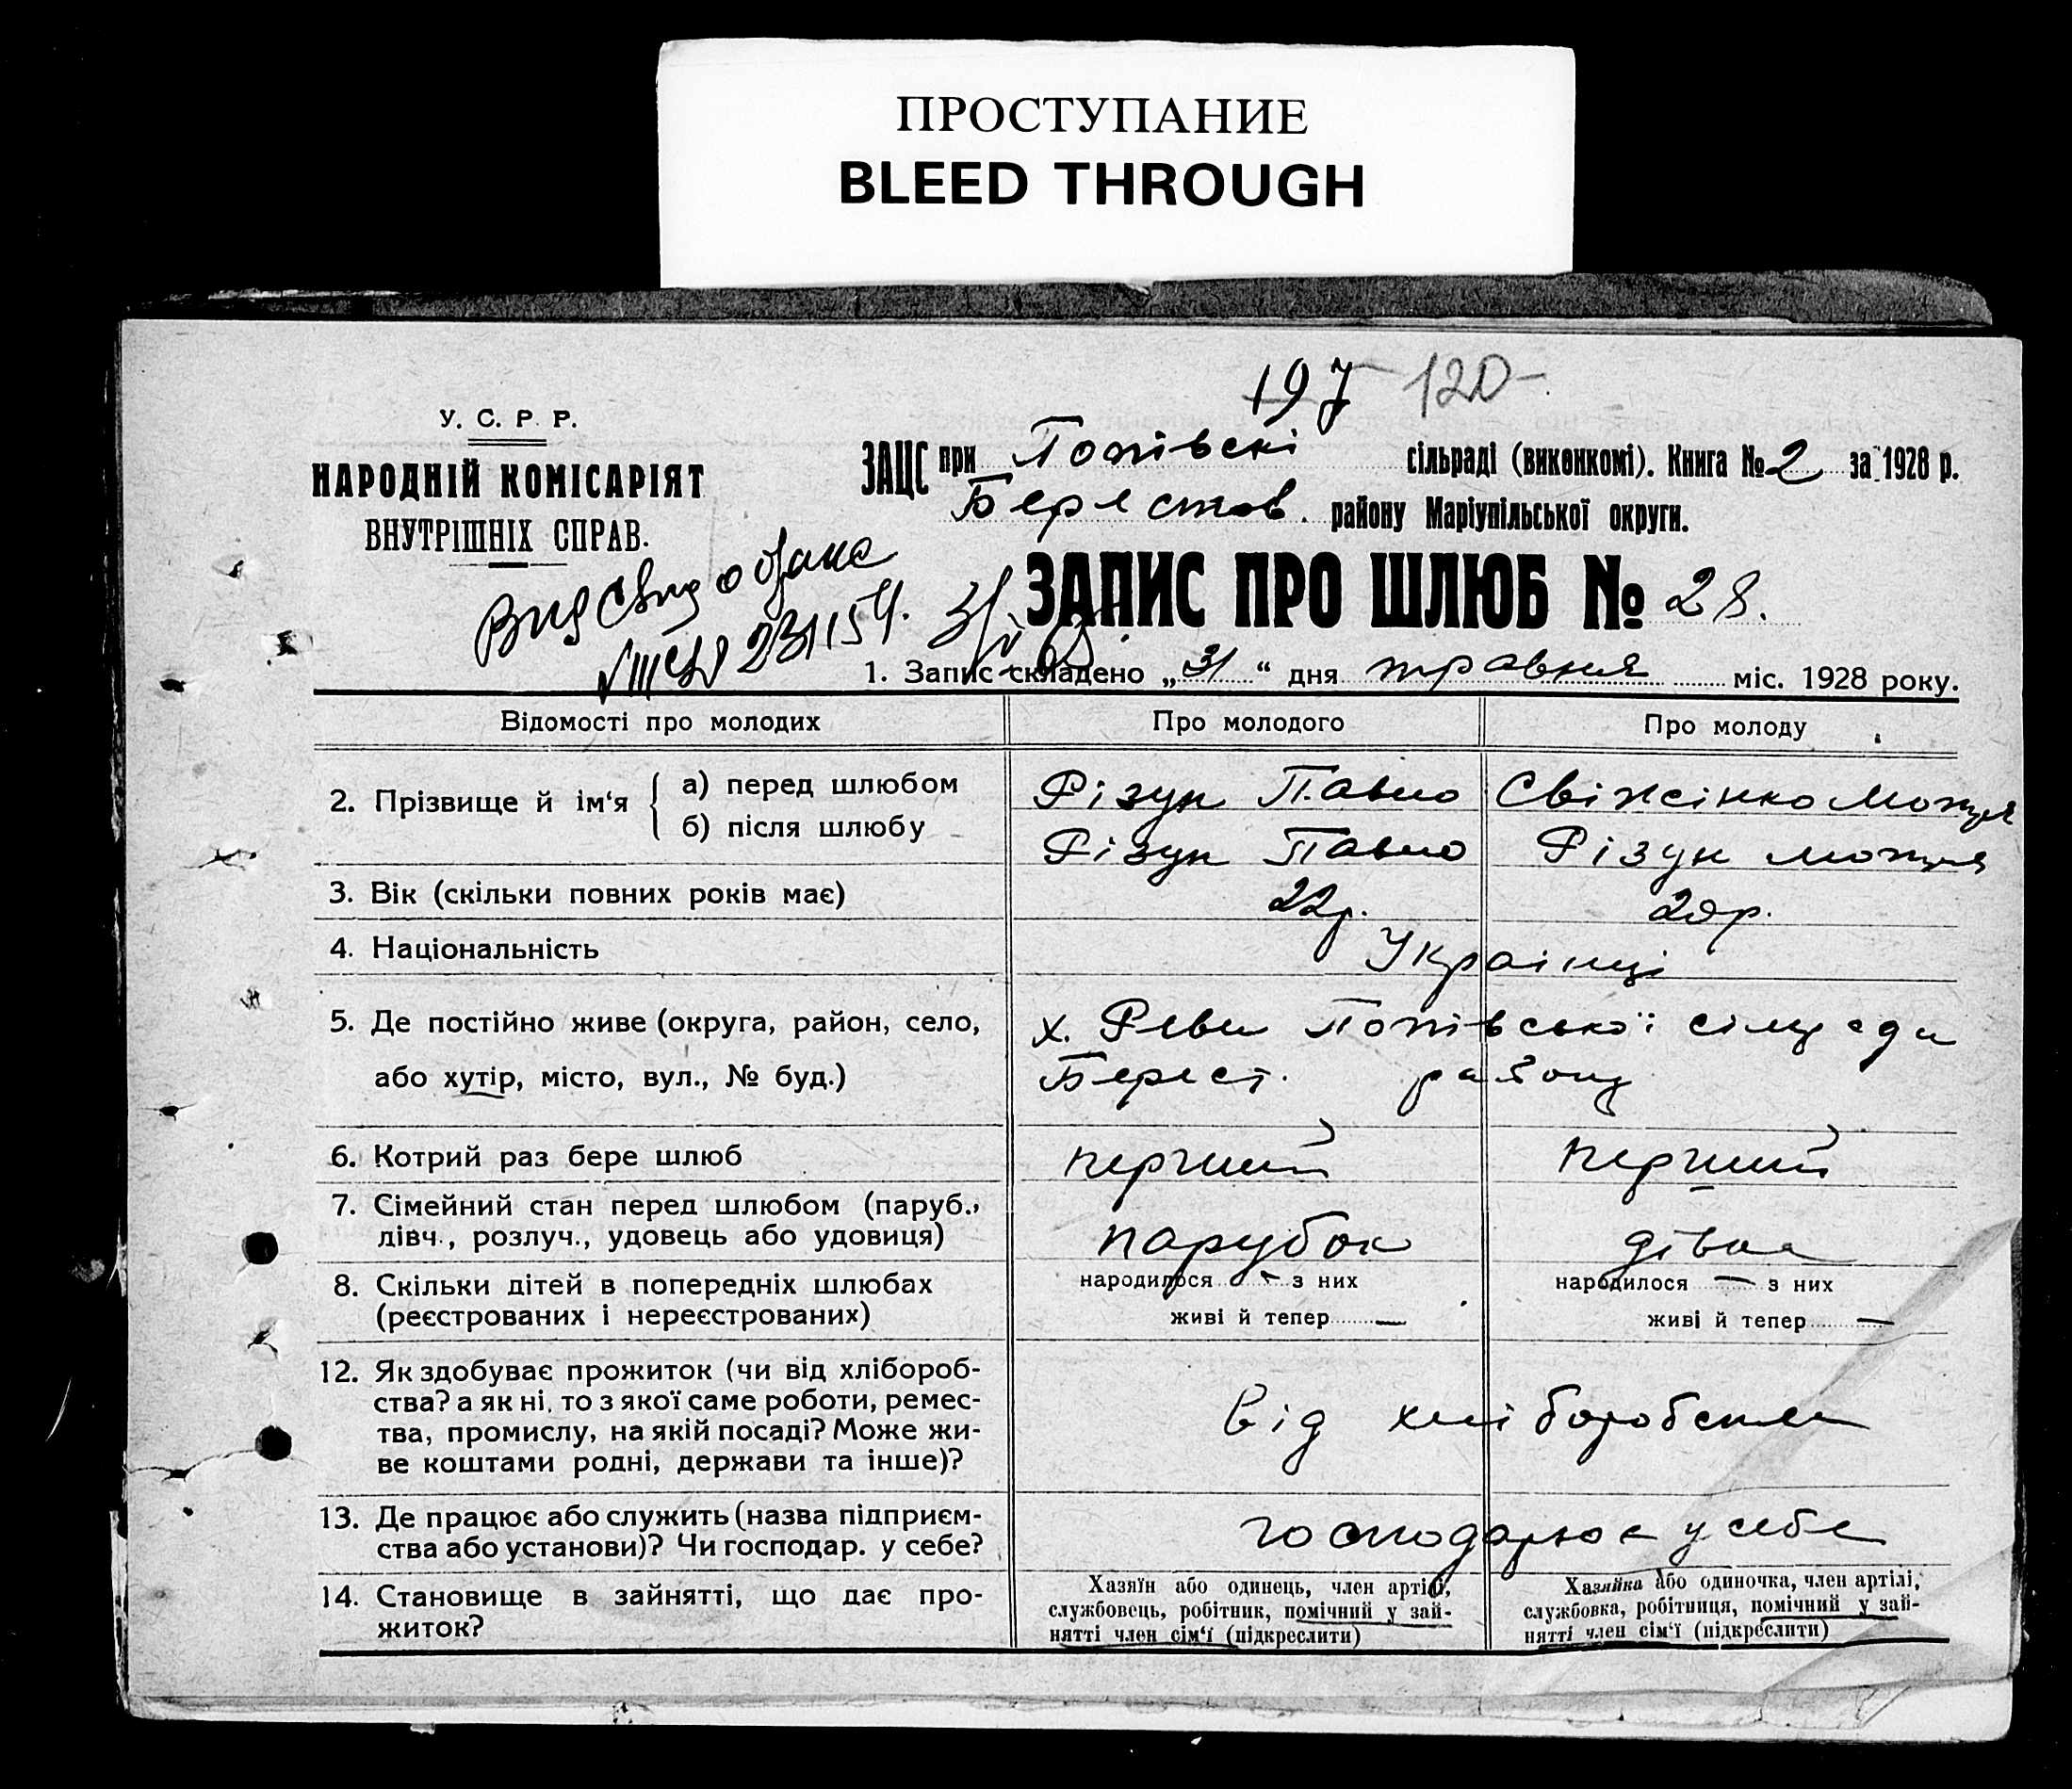 ПРОСТУПАНИЕ
BLEED THROUGH
197 120
У. С. Р. Р.
НАРОДНІЙ КОМІСАРІЯТ
ВНУТРІШНІХ СПРАВ.
ЗАЦС при Попівскі сільраді (виконкомі). Книга № 2 за 1928 р.
Берестов. району Маріупільської округи.
ЗАПИС ПРО ШЛЮБ № 28.
231154.
1. Запис складено „31“ дня травня міс. 1928 року.
Відомості про молодих Про молодого Про молоду
2. Прізвище й ім‘я а) перед шлюбом Різун Павло Свіженко Мотря
б) після шлюбу Різун Павло Різун Мотря
3. Вік (скільки повних років має) 22р. 20р.
4. Національність Українці
5. Де постійно живе (округа, район, село, х. Реви Попівської сільради
або хутір, місто, вул., № буд.) Берест. району
6. Котрий раз бере шлюб перший перший
7. Сімейний стан перед шлюбом (паруб.,
дівч., розлуч., удовець або удовиця) парубок дівка
8. Скільки дітей в попередніх шлюбах народилося — з них народилося — з них
(реєстрованих і нереєстрованих) живі й тепер — живі й тепер —
12. Як здобуває прожиток (чи від хлібороб-
ства? а як ні, то з якої саме роботи, ремес- від хліборобства
тва, промислу, на якій посаді? Може жи-
ве коштами родні, держави та інше)?
13. Де працює або служить (назва підприєм-
ства або установи)? Чи господар. у себе? господарює у себе
14. Становище в зайнятті, що дає про-
житок?
Хазяїн або одинець, член артілі,
службовець, робітник, помічний у зай-
нятті член сім‘ї (підкреслити)
Хазяйка або одиночка, член артілі,
службовка, робітниця, помічний у зай-
нятті член сім‘ї (підкреслити)